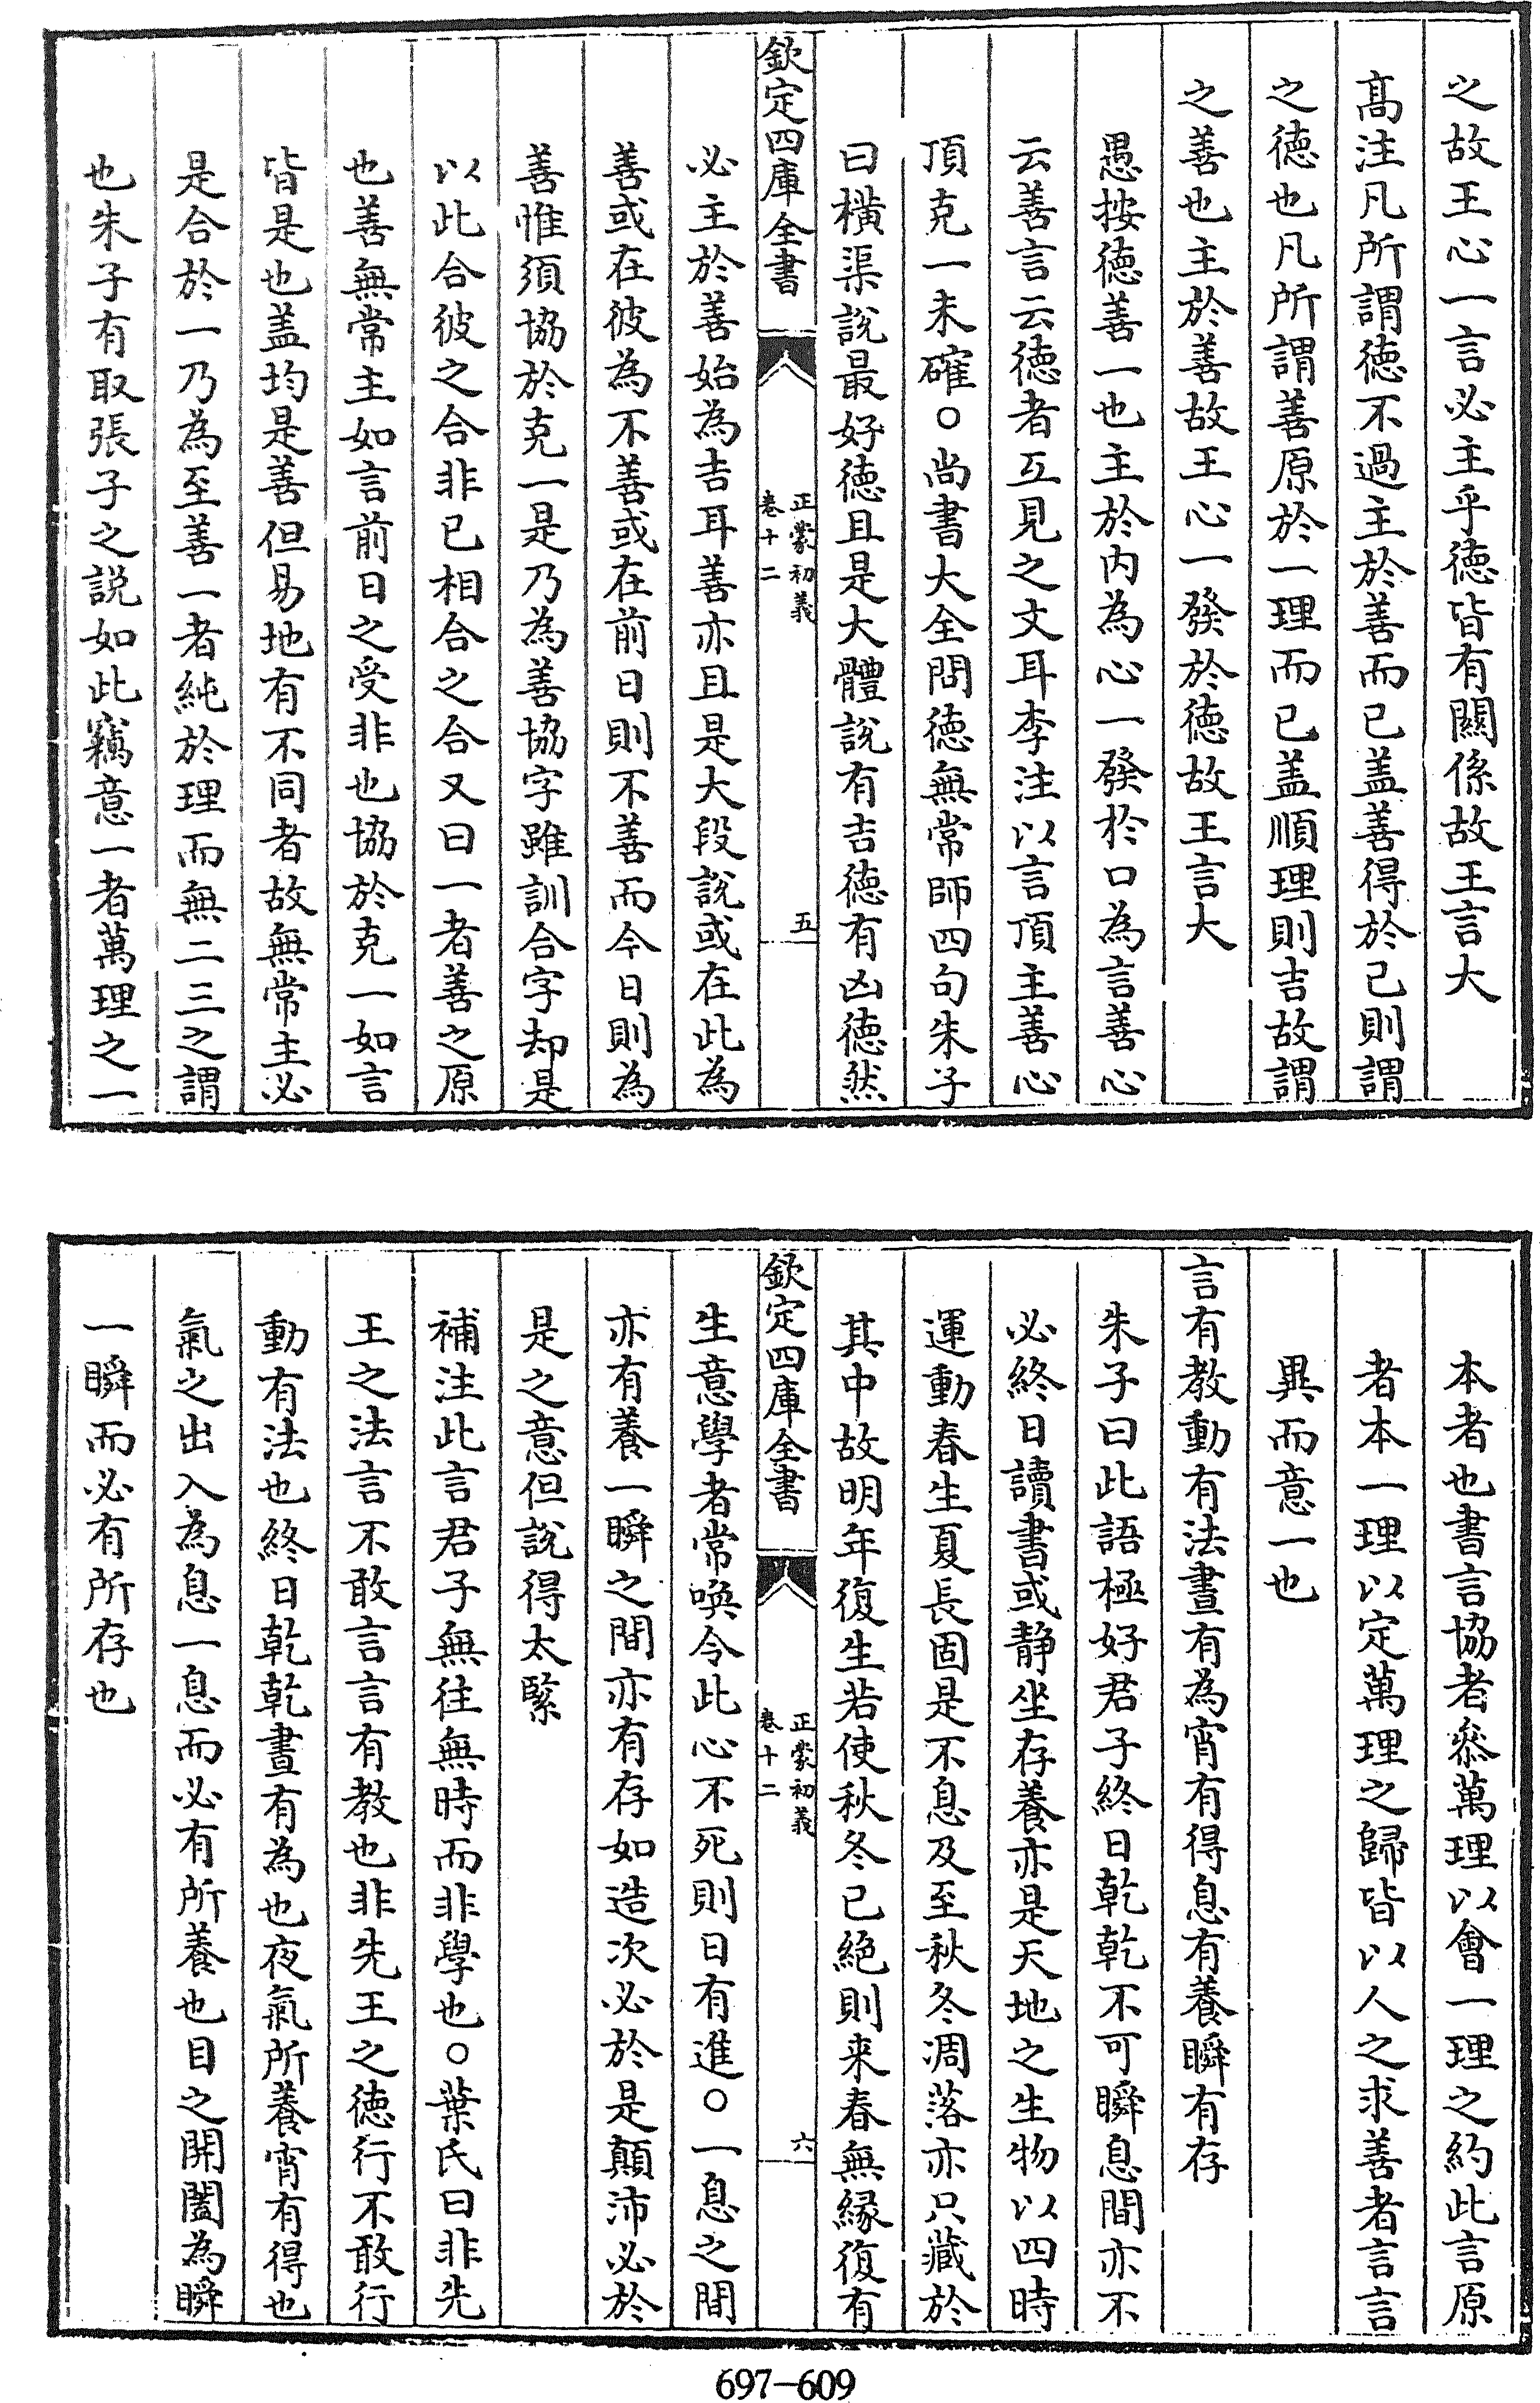 之故王心一言必主乎徳皆有關係故王言大
髙注凡所謂徳不過主於善而已盖善得於己則謂
之徳也凡所謂善原於一理而已盖順理則吉故謂
之善也主於善故王心一發於徳故王言大
愚按徳善一也主於内為心一發於口為言善心
云善言云徳者互見之文耳李注以言頂主善心
頂克一未確○尚書大全問徳無常師四句朱子
曰橫渠説最好徳且是大體説有吉徳有凶徳然
欽定四庫全書
正蒙初義
卷十二
五
必主於善始為吉耳善亦且是大段説或在此為
善或在彼為不善或在前日則不善而今日則為
善惟須協於克一是乃為善協字雖訓合字却是
以此合彼之合非已相合之合又曰一者善之原
也善無常主如言前日之受非也協於克一如言
皆是也盖均是善但易地有不同者故無常主必
是合於一乃為至善一者純於理而無二三之謂
也朱子有取張子之説如此竊意一者萬理之一
本者也書言協者叅萬理以會一理之約此言原
者本一理以定萬理之歸皆以人之求善者言言
異而意一也
言有教動有法晝有為宵有得息有養瞬有存
朱子曰此語極好君子終日乾乾不可瞬息間亦不
必終日讀書或静坐存養亦是天地之生物以四時
運動春生夏長固是不息及至秋冬凋落亦只藏於
其中故明年復生若使秋冬已絶則来春無縁復有
欽定四庫全書
正蒙初義
卷十二
六
生意學者常喚令此心不死則日有進○一息之間
亦有養一瞬之間亦有存如造次必於是顛沛必於
是之意但説得太緊
補注此言君子無往無時而非學也○葉氏曰非先
王之法言不敢言言有教也非先王之徳行不敢行
動有法也終日乾乾晝有為也夜氣所養宵有得也
氣之出入為息一息而必有所養也目之開闔為瞬
一瞬而必有所存也
697-609